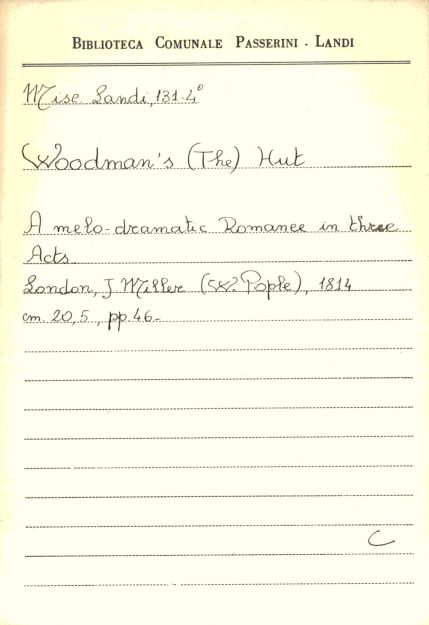 BIBLIOTECA COMUNALE PASSERINI - LANDI
Misc. Landi, 131-4°
Woodman's (The) Hut
A melo-dramatic Romance in three
Acts.
London, J. Miller (W. Pople), 1814
cm. 20,5, pp. 46-
C